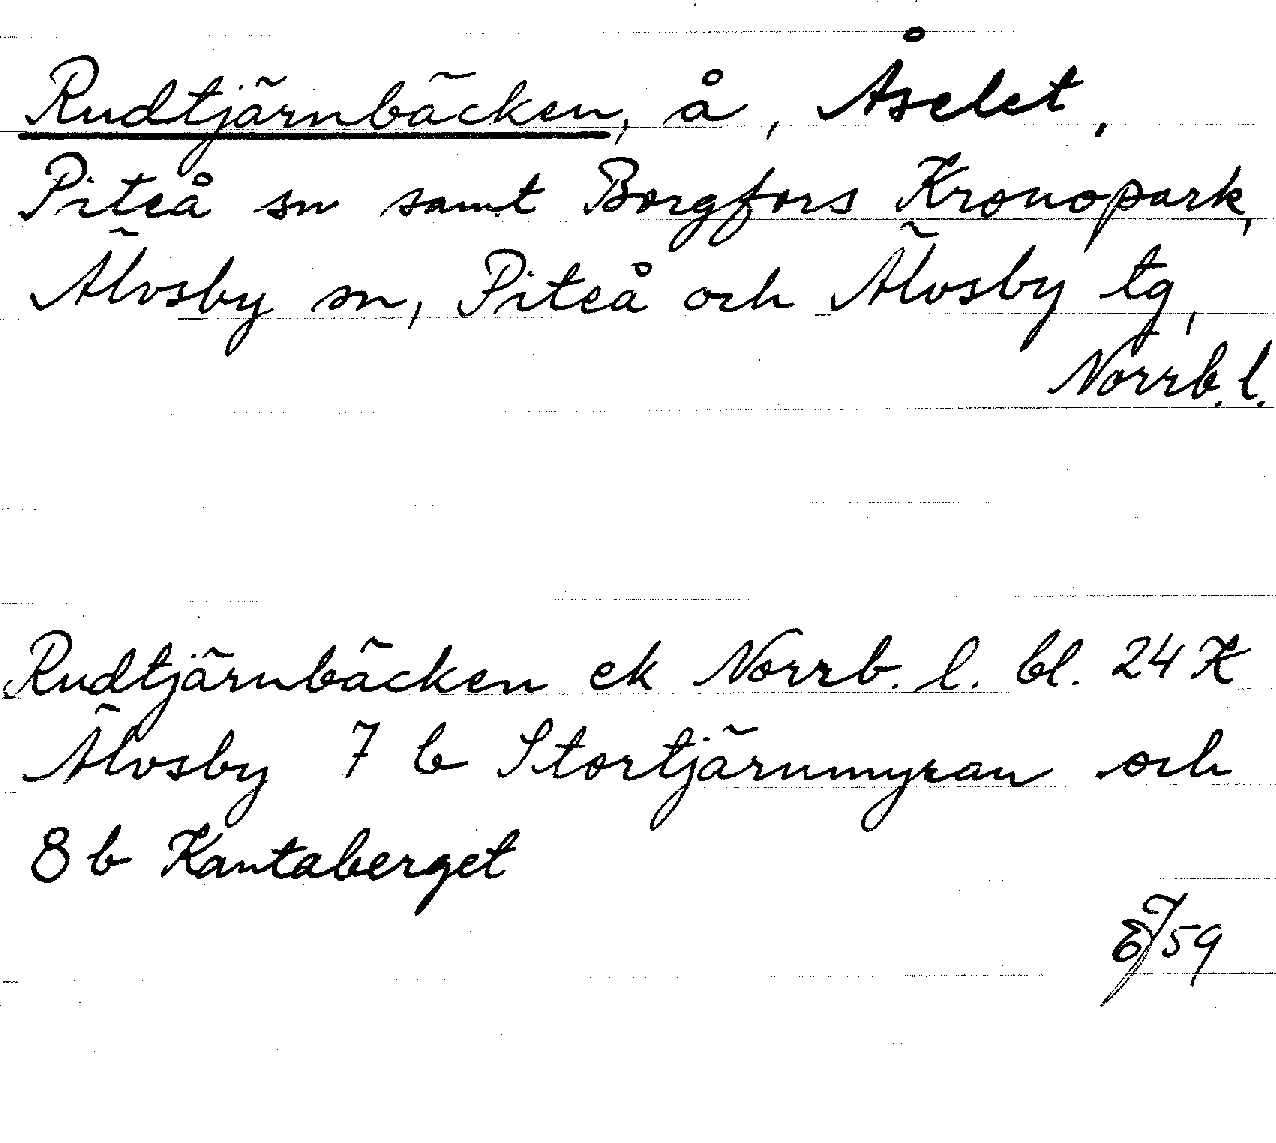 Rudtjärnbäcken, å, Åselet,
Piteå sn samt Borgfors Kronopark,
Älvsby sn, Piteå och Älvsby tg,
Norrb. l.
Rudtjärnbäcken ek Norrb. l. bl. 24 K
Älvsby 7 b Stortjärnmyran och
8 b Kantaberget
59